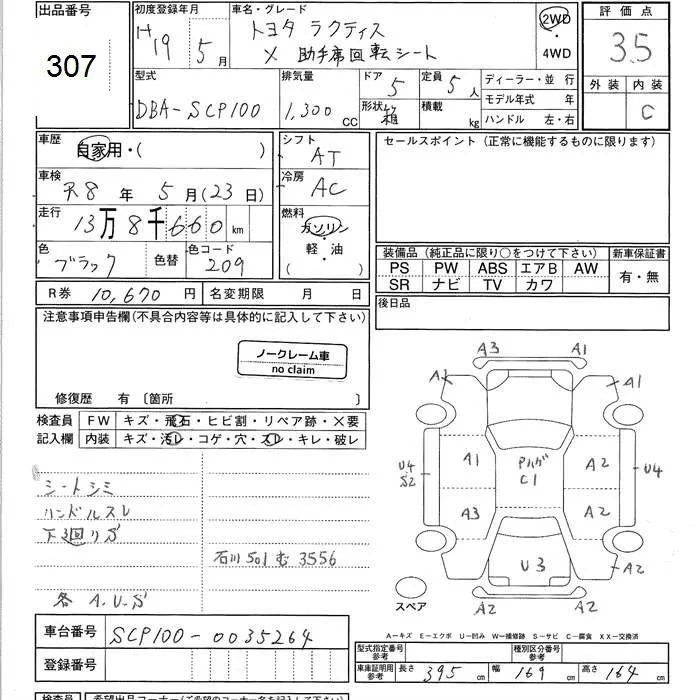 出品番号
307
初度登録年月
H19 5月
車名・グレード
トヨタ ラクティス
X 助手席回転シート
2WD
・
4WD
評価点
3.5
外装 内装
C
型式
DBA-SCP100
排気量
1,300 CC
ドア
5
形状
箱
定員
5人
積載
kg
ディーラー・並行
モデル年式 年
ハンドル 左・右
車歴
自家用・( )
車検
R8年 5月(23日)
走行
13万8千660km
色
ブラック
色替
色コード
209
シフト
AT
冷房
AC
燃料
ガソリン
・
軽・油
( )
セールスポイント(正常に機能するものに限ります)
装備品(純正品に限り○をつけて下さい)
PS PW ABS エアB AW
SR ナビ TV カワ
新車保証書
有・無
後日品
R券 10,670円
名変期限 月 日
注意事項申告欄(不具合内容等は具体的に記入して下さい)
ノークレーム車
no claim
修復歴 有〔箇所 〕
検査員 FW キズ・飛石・ヒビ割・リペア跡・×要
記入欄 内装 キズ・汚レ・コゲ・穴・スレ・キレ・破レ
シートシミ
ハンドルスレ
下3回リS
石川 501 む 3556
各 A.U.S
A3 A1
A1 A1
U4
S2
A1
Pハゲ
C1
A2
U4
A3 A2
U3
A2
A2 A2
スペア
A-キズ E-エクボ U-凹み W-補修跡 S-サビ C-腐食 XX-交換済
車台番号 SCP100-0035264
登録番号
型式指定番号
参考
種別区分番号
参考
車庫証明用
参考
長さ 395cm 幅 169cm 高さ 164cm
検査員 希望出品コーナー(ご希望のコーナー名を記入して下さい)